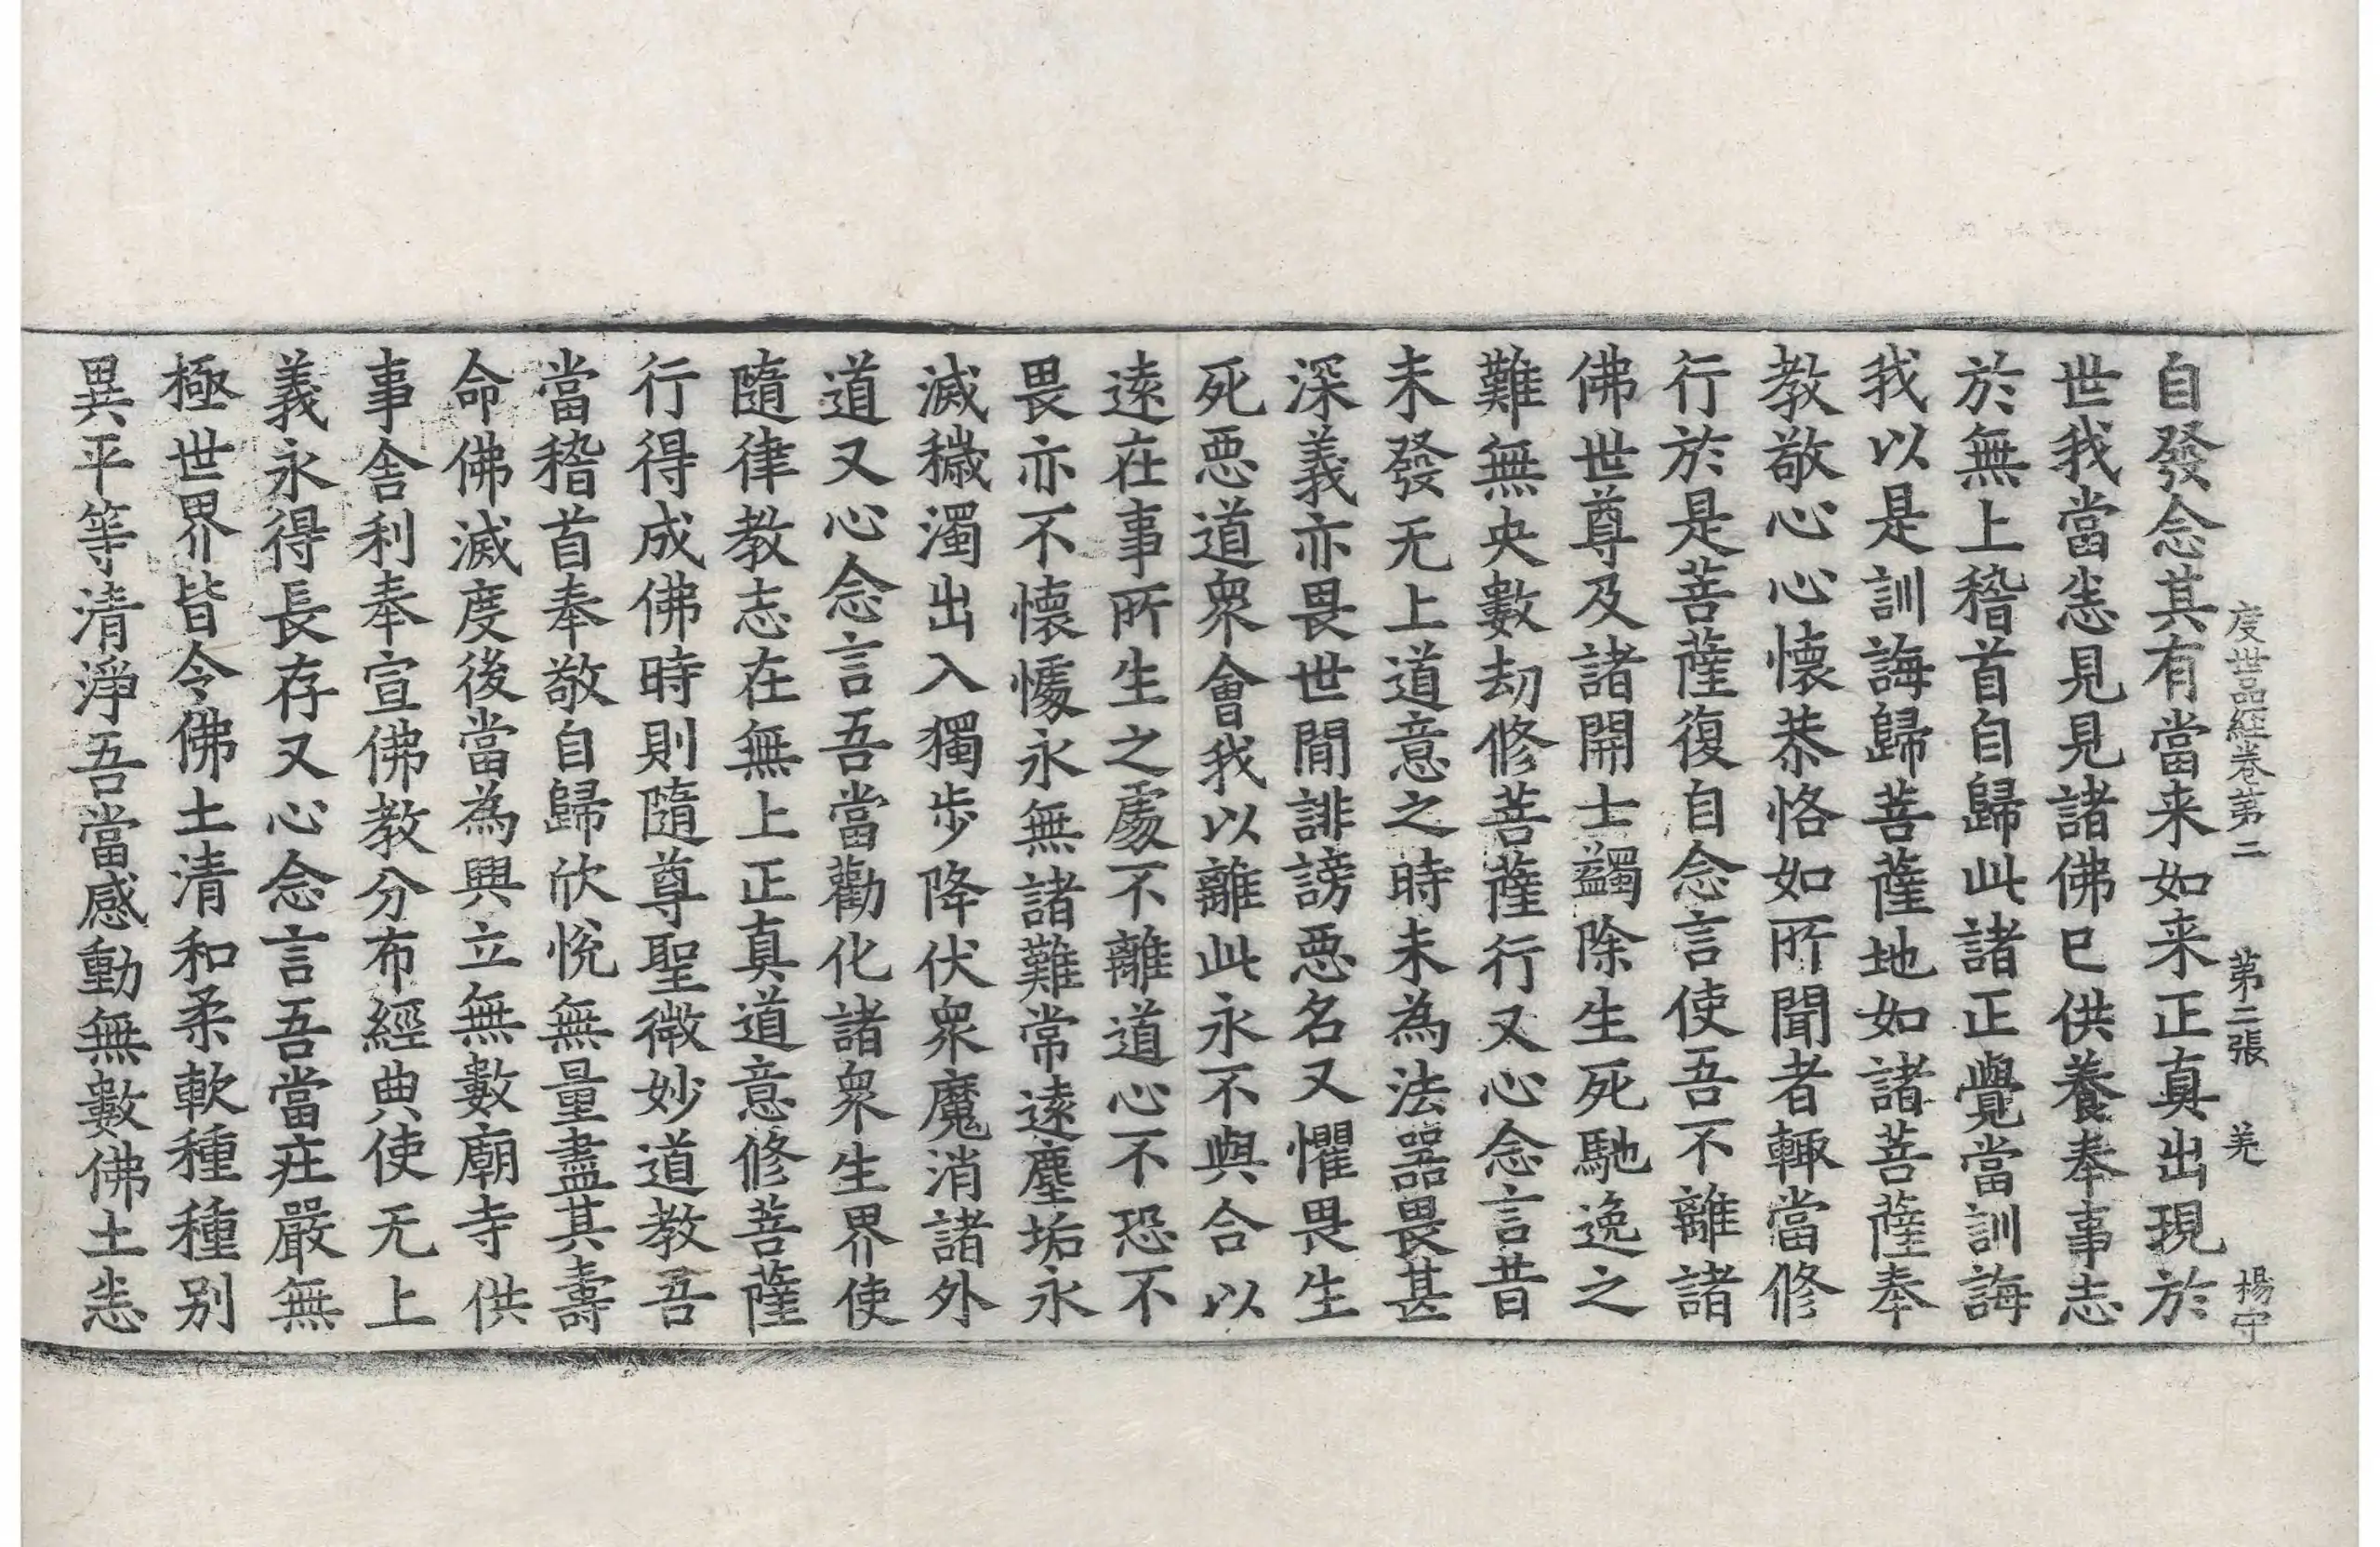 度世品經卷第二　第二張　羌　楊守
自發念其有當来如来正真出現於
世我當恙見見諸佛已供養奉事志
於無上稽首自歸此諸正覺當訓誨
我以是訓誨歸菩薩地如諸菩薩奉
教敬心心懷恭恪如所聞者輙當修
行於是菩薩復自念言使吾不離諸
佛世尊及諸開士蠲除生死馳逸之
難無央數劫修菩薩行又心念言昔
未發无上道意之時未為法器畏甚
深義亦畏世間誹謗惡名又懼畏生
死惡道衆會我以離此永不與合以
遠在事所生之處不離道心不恐不
畏亦不懷懅永無諸難常遠塵垢永
滅穢濁出入獨步降伏衆魔消諸外
道又心念言吾當勸化諸衆生界使
隨律教志在無上正真道意修菩薩
行得成佛時則隨尊聖微妙道教吾
當稽首奉敬自歸欣悅無量盡其壽
命佛滅度後當為興立無數廟寺供
事舎利奉宣佛教分布經典使无上
義永得長存又心念言吾當莊嚴無
極世界皆令佛土清和柔軟種種别
異平等清淨吾當感動無數佛土恙